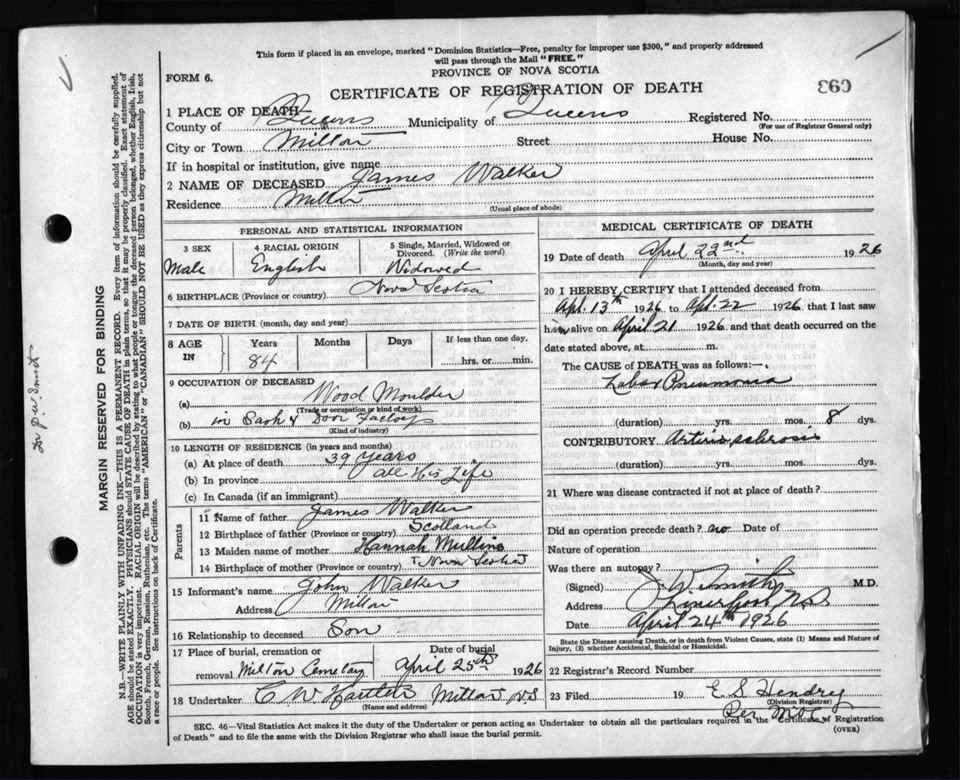 This form if placed in an envelope, marked "Dominion Statistics—Free, penalty for improper use $300," and properly addressed
will pass through the Mail "FREE."
FORM 6.
PROVINCE OF NOVA SCOTIA
CERTIFICATE OF REGISTRATION OF DEATH
693
1 PLACE OF DEATH
County of Queens Municipality of Queens Registered No.
(For use of Registrar General only)
City or Town Milton Street House No.
If in hospital or institution, give name
2 NAME OF DECEASED James Walker
Residence Milton
(Usual place of abode)
PERSONAL AND STATISTICAL INFORMATION
3 SEX 4 RACIAL ORIGIN 5 Single, Married, Widowed or
Divorced. (Write the word)
Male English Widowed
6 BIRTHPLACE (Province or country) Nova Scotia
7 DATE OF BIRTH (month, day and year)
8 AGE IN Years Months Days If less than one day,
84 hrs. or min.
9 OCCUPATION OF DECEASED
(a) Wood Moulder
(Trade or occupation or kind of work)
(b) in Sash & Door Factory
(Kind of industry)
10 LENGTH OF RESIDENCE (in years and months)
(a) At place of death 39 years
(b) In province all His Life
(c) In Canada (if an immigrant)
Parents
11 Name of father James Walker
12 Birthplace of father (Province or country) Scotland
13 Maiden name of mother Hannah Mullins
14 Birthplace of mother (Province or country) Nova Scotia
15 Informant's name John Walker
Address Milton
16 Relationship to deceased Son
17 Place of burial, cremation or
removal Milton Cemetary April 25th 1926
18 Undertaker C. W. Milton N.S
(Name and address)
MEDICAL CERTIFICATE OF DEATH
19 Date of death April 22nd 1926
(Month, day and year)
20 I HEREBY CERTIFY that I attended deceased from
Apl. 13th 1926 to Apl. 22 1926 that I last saw
him alive on April 21 1926 and that death occurred on
date stated above, at m.
The CAUSE of DEATH was as follows:—
Lobar Pneumonia
(duration) yrs. mos. 8 dys.
CONTRIBUTORY Arterio sclerosis
(duration) yrs. mos. dys.
21 Where was disease contracted if not at place of death?
Did an operation precede death? no Date of
Nature of operation
Was there an autopsy?
(Signed) J. W. Smith M.D.
Address Liverpool N.S
Date April 24th 1926
State the Disease causing Death, or in death from Violent Causes, state (1) Means and Nature of
Injury, (2) whether Accidental, Suicidal or Homicidal.
22 Registrar's Record Number
23 Filed 19 E S Hendry
(Division Registrar)
Per
SEC. 46—Vital Statistics Act makes it the duty of the Undertaker or person acting as Undertaker to obtain all the particulars required in the Certificate of Registration
of Death" and to file the same with the Division Registrar who shall issue the burial permit.
(OVER)
MARGIN RESERVED FOR BINDING
N.B.—WRITE PLAINLY WITH UNFADING INK—THIS IS A PERMANENT RECORD. Every item of information should be carefully supplied.
AGE should be stated EXACTLY. PHYSICIANS should STATE CAUSE OF DEATH in plain terms, so that it may be properly classified. Exact statement of
OCCUPATION is very important. RACIAL ORIGIN will be described by stating to what people or tongue the deceased person belonged, whether English, Irish,
Scotch, French, German, Russian, Ruthenian, etc. The terms "AMERICAN" or "CANADIAN" SHOULD NOT BE USED as they express citizenship but not
a race or people. See instructions on back of Certificate.
Dr J.W. Smith